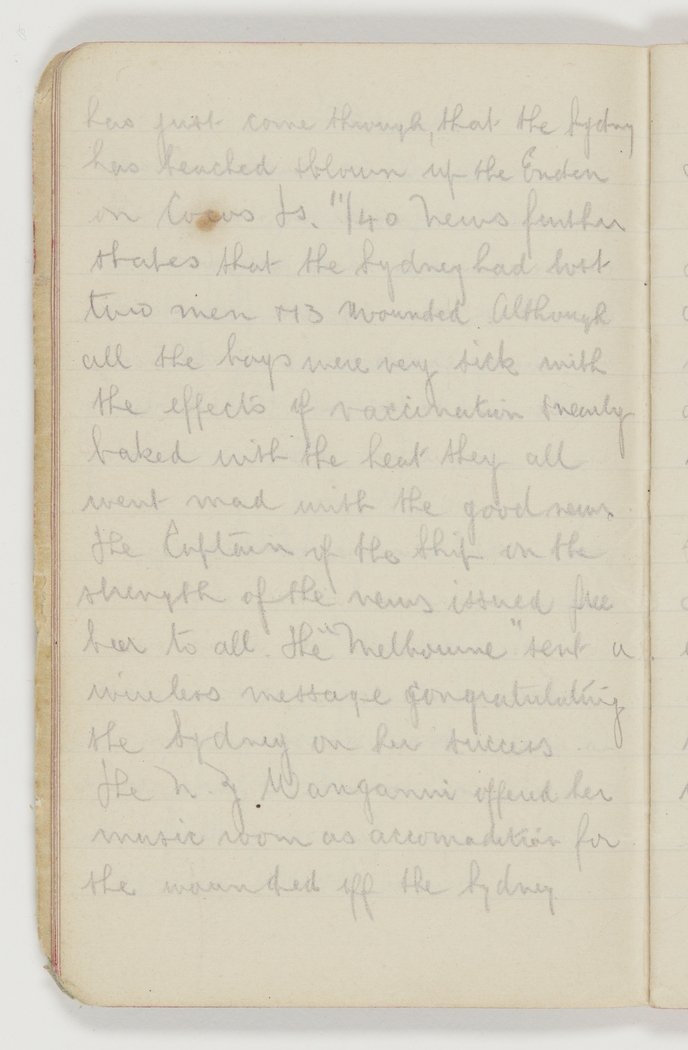 has just come through, that the Sydney
has beached & blown up the Emden
on Cocos Is. 11/40 News further
states that the Sydney had lost
two men & 13 wounded. Although
all the boys were very sick with
the effects of vaccination & nearly
baked with the heat they all
went mad with the good news.
The Captain of the Ship on the
strength of the news issued free
beer to all. The "Melbourne" sent a
wireless message congratulating
the Sydney on her success.
The N.Z Wanganui offered her
music room as accomadation for
the wounded off the Sydney